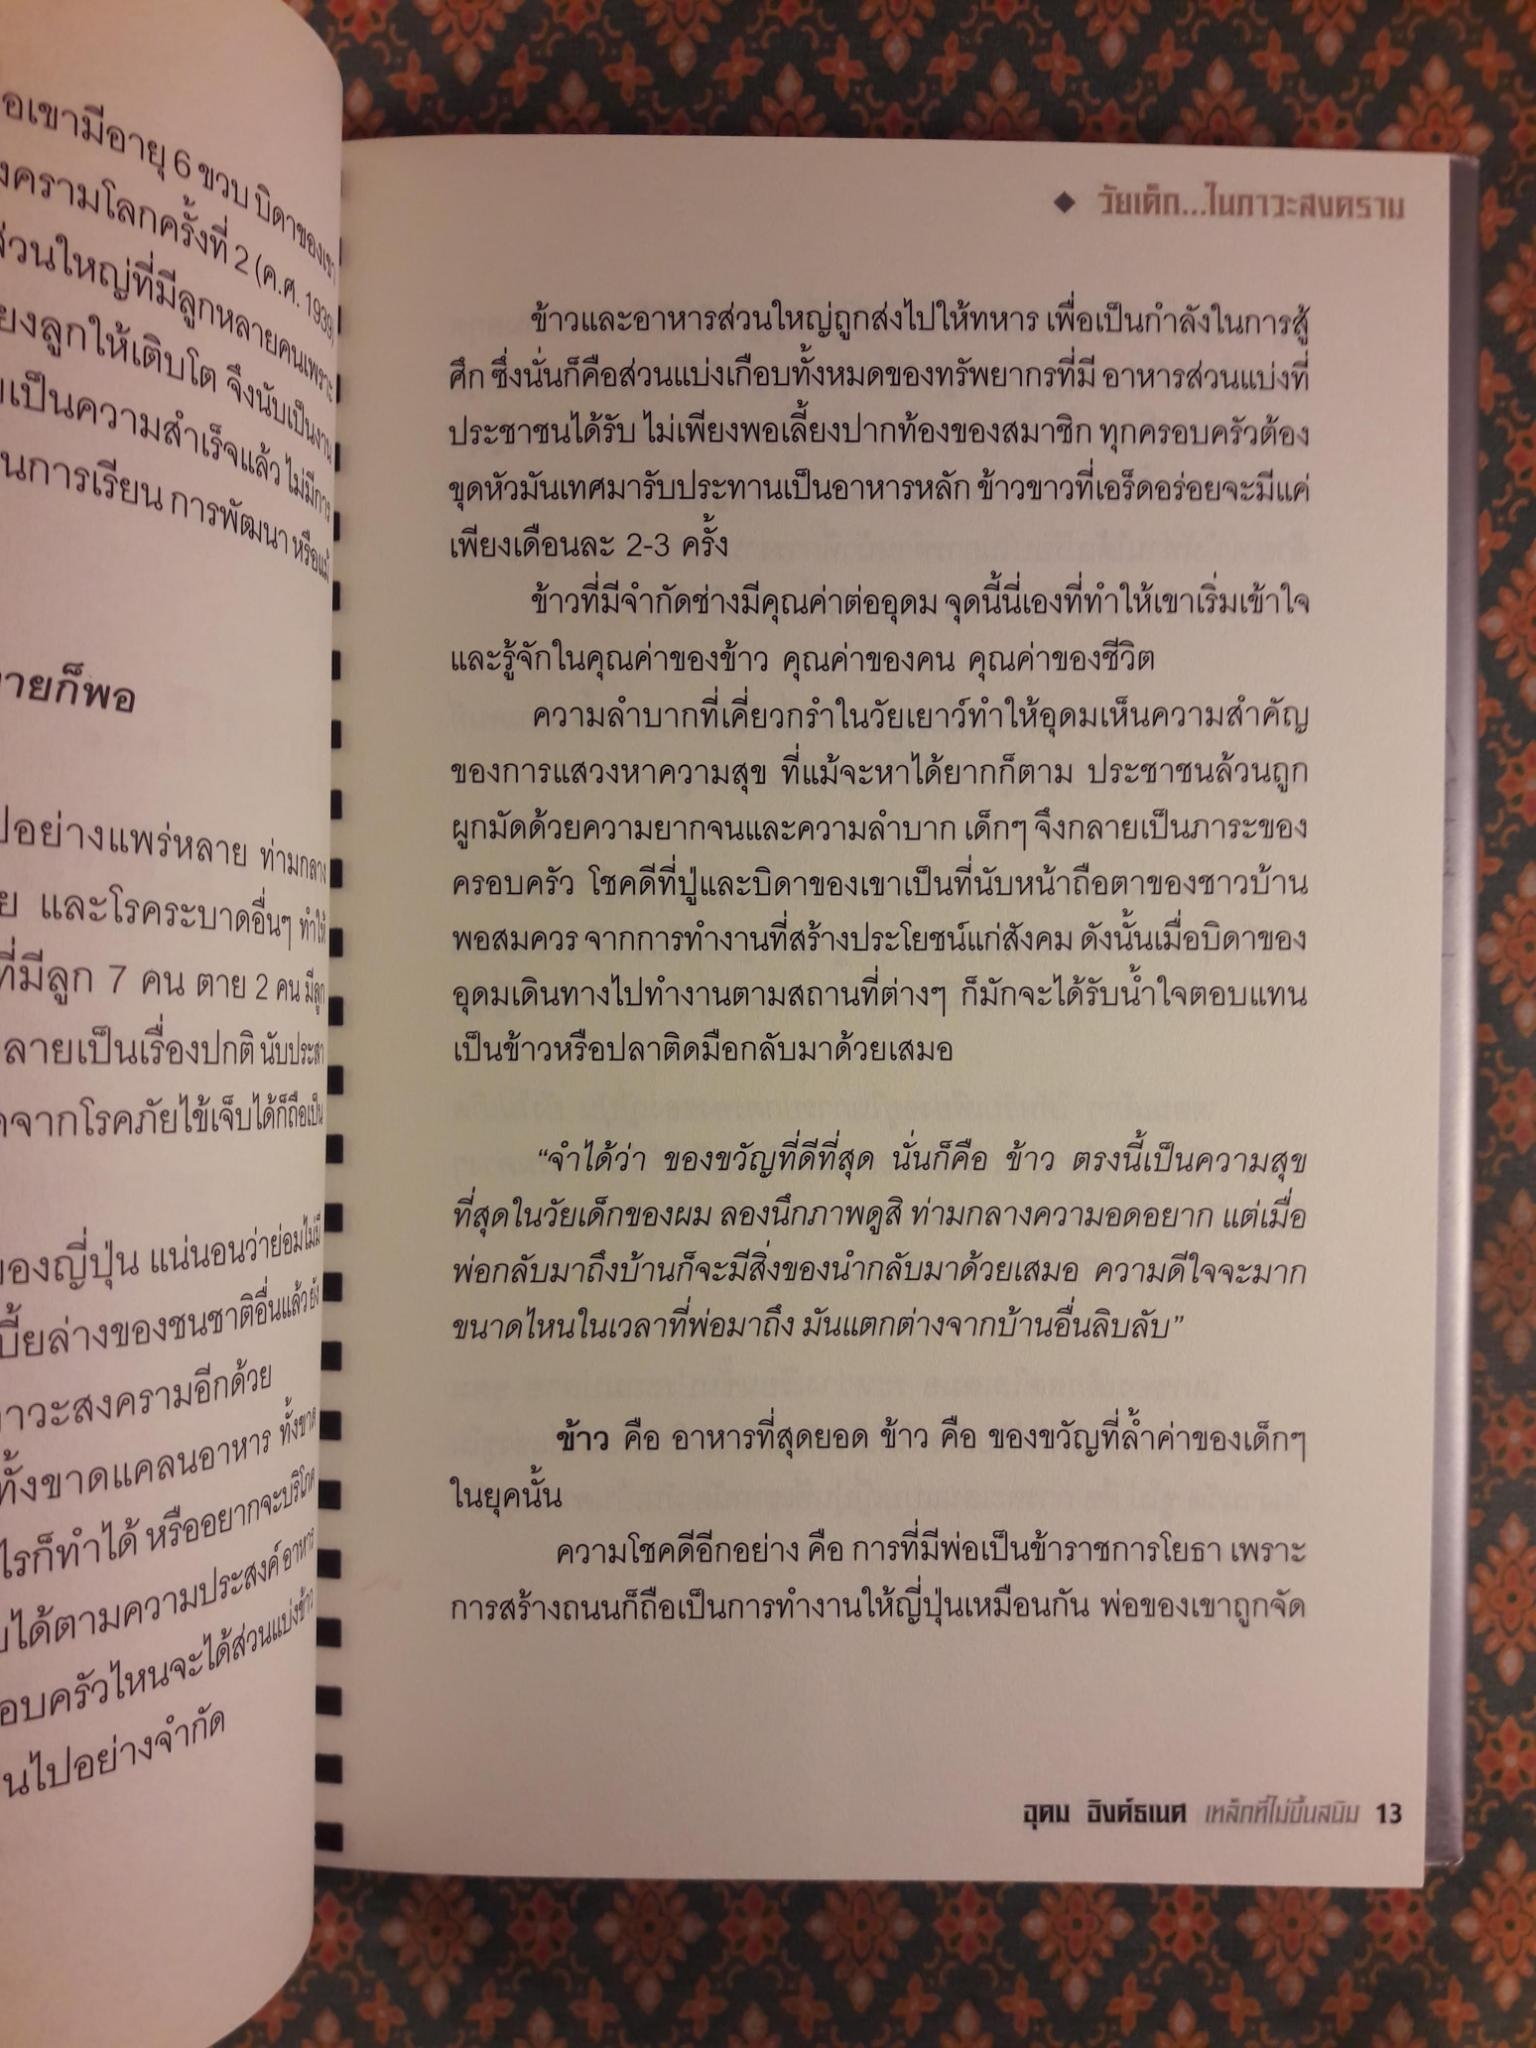 อเขามีอายุ 6 ขวบ บิดาของเขา
งครามโลกครั้งที่ 2 (ค.ศ. 1939)
ส่วนใหญ่ที่มีลูกหลายคนเพราะ
ยงลูกให้เติบโต จึงนับเป็นงาน
เป็นความสำเร็จแล้ว ไม่มีการ
นการเรียน การพัฒนา หรือแม้
ายก็พอ
ปอย่างแพร่หลาย ท่ามกลาง
ย และโรคระบาดอื่นๆ ทำให้
ที่มีลูก 7 คน ตาย 2 คน มีลูก
ลายเป็นเรื่องปกติ นับประสา
จากโรคภัยไข้เจ็บได้ก็ถือเป็น
ของญี่ปุ่น แน่นอนว่าย่อมไม่มี
บี้ยล่างของชนชาติอื่นแล้ว ยัง
าวะสงครามอีกด้วย
ทั้งขาดแคลนอาหาร ทั้งขาด
ไรก็ทำได้ หรืออยากจะบริโภค
ได้ตามความประสงค์ อาหาร
อบครัวไหนจะได้ส่วนแบ่งข้าว
นไปอย่างจำกัด
◆ วัยเด็ก...ในภาวะสงคราม
ข้าวและอาหารส่วนใหญ่ถูกส่งไปให้ทหาร เพื่อเป็นกำลังในการสู้
ศึก ซึ่งนั่นก็คือส่วนแบ่งเกือบทั้งหมดของทรัพยากรที่มี อาหารส่วนแบ่งที่
ประชาชนได้รับ ไม่เพียงพอเลี้ยงปากท้องของสมาชิก ทุกครอบครัวต้อง
ขุดหัวมันเทศมารับประทานเป็นอาหารหลัก ข้าวขาวที่เอร็ดอร่อยจะมีแค่
เพียงเดือนละ 2-3 ครั้ง
ข้าวที่มีจำกัดช่างมีคุณค่าต่ออุดม จุดนี้นี่เองที่ทำให้เขาเริ่มเข้าใจ
และรู้จักในคุณค่าของข้าว คุณค่าของคน คุณค่าของชีวิต
ความลำบากที่เคี่ยวกรำในวัยเยาว์ทำให้อุดมเห็นความสำคัญ
ของการแสวงหาความสุข ที่แม้จะหาได้ยากก็ตาม ประชาชนล้วนถูก
ผูกมัดด้วยความยากจนและความลำบาก เด็กๆ จึงกลายเป็นภาระของ
ครอบครัว โชคดีที่ปู่และบิดาของเขาเป็นที่นับหน้าถือตาของชาวบ้าน
พอสมควร จากการทำงานที่สร้างประโยชน์แก่สังคม ดังนั้นเมื่อบิดาของ
อุดมเดินทางไปทำงานตามสถานที่ต่างๆ ก็มักจะได้รับน้ำใจตอบแทน
เป็นข้าวหรือปลาติดมือกลับมาด้วยเสมอ
“จำได้ว่า ของขวัญที่ดีที่สุด นั่นก็คือ ข้าว ตรงนี้เป็นความสุข
ที่สุดในวัยเด็กของผม ลองนึกภาพดูสิ ท่ามกลางความอดอยาก แต่เมื่อ
พ่อกลับมาถึงบ้านก็จะมีสิ่งของนำกลับมาด้วยเสมอ ความดีใจจะมาก
ขนาดไหนในเวลาที่พ่อมาถึง มันแตกต่างจากบ้านอื่นลิบลับ”
ข้าว คือ อาหารที่สุดยอด ข้าว คือ ของขวัญที่ล้ำค่าของเด็กๆ
ในยุคนั้น
ความโชคดีอีกอย่าง คือ การที่มีพ่อเป็นข้าราชการโยธา เพราะ
การสร้างถนนก็ถือเป็นการทำงานให้ญี่ปุ่นเหมือนกัน พ่อของเขาถูกจัด
อุดม อิงค์ธเนศ เหล็กที่ไม่ขึ้นสนิม 13